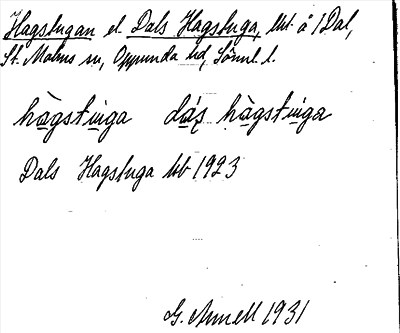 Hagstugan el. Dals Hagstuga, lht å 1 Dal,
St. Malms sn, Oppunda hd, Söml. l.
hàgstuga dás hàgstuga
Dals Hagstuga bb 1923
G. Annell 1931